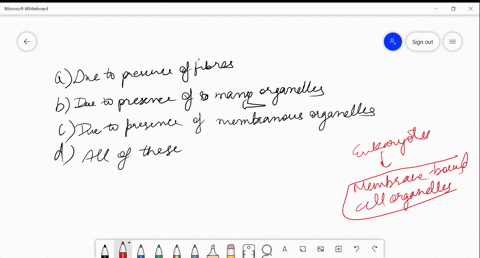 Microsoft Whiteboard
Sign out
a) Due to presence of fibres
b) Due to presence of so many organelles
c) Due to presence of membranous organelles
d) All of these
Eukaryotes
Membrane bound
cell organelles